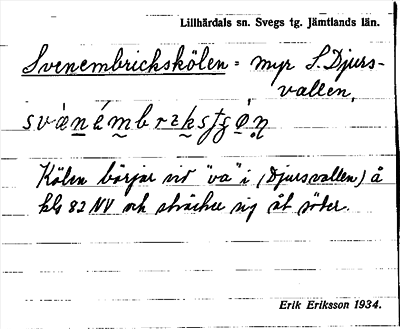 Lillhärdals sn. Svegs tg. Jämtlands län.
Svenembrickskölen = myr S. Djurs-
vallen.
Kölen börjar vid "va" i (Djursvallen) å
kbl 82 NV och sträcker sig åt söder.
Erik Eriksson 1934.